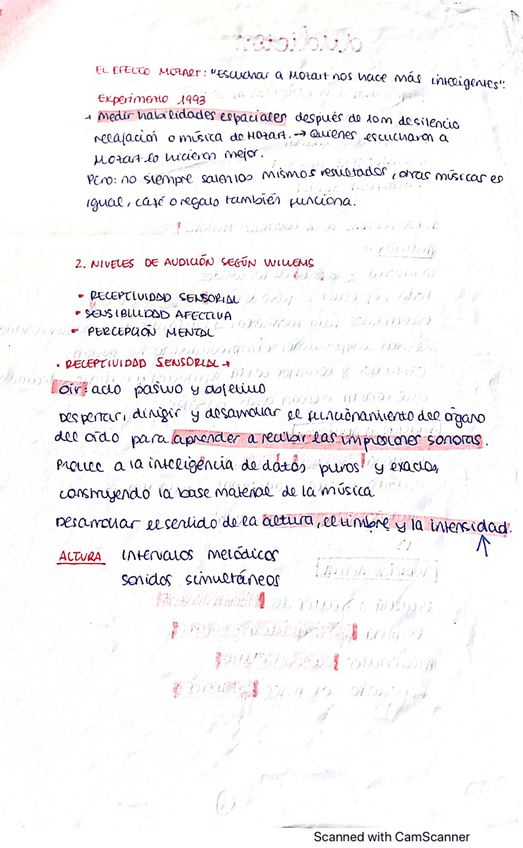 EL EFECTO MOZART: "Escuchar a Mozart nos hace más inteligentes".
Experimento 1993
→ Medir habilidades espaciales después de 10m de silencio
relajación o música de Mozart. → Quienes escucharon a
Mozart lo hicieron mejor.
Pero: no siempre salen los mismos resultados, otras músicas es
igual, café o regalo también funciona.
2. NIVELES DE AUDICIÓN SEGÚN WILLEMS
• RECEPTIVIDAD SENSORIAL
• SENSIBILIDAD AFECTIVA
• PERCEPCIÓN MENTAL
• RECEPTIVIDAD SENSORIAL →
oir: acto pasivo y objetivo
Despertar, dirigir y desarrollar el funcionamiento del órgano
del oído para aprender a recibir las impresiones sonoras.
Provee a la inteligencia de datos puros y exactos,
construyendo la base material de la música
Desarrollar el sentido de la altura, el timbre y la intensidad.
ALTURA Intervalos melódicos
sonidos simultáneos
Scanned with CamScanner